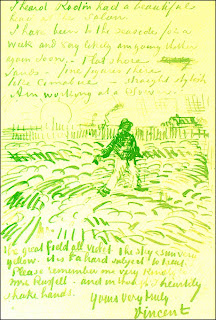 I heard Rodin had a beautiful
head at the salon.
I have been to the seaside for a
week and very likely am going thither
again soon. Flat shore
sands – fine figures there
like Cimabue – straight stylish
Am working at a Sower
the great field all violet the sky & sun very
yellow. it is a hard subject to treat.
Please remember me very kindly to
Mrs Russell – and in thought I heartily
shake hands.
Yours very truly
Vincent